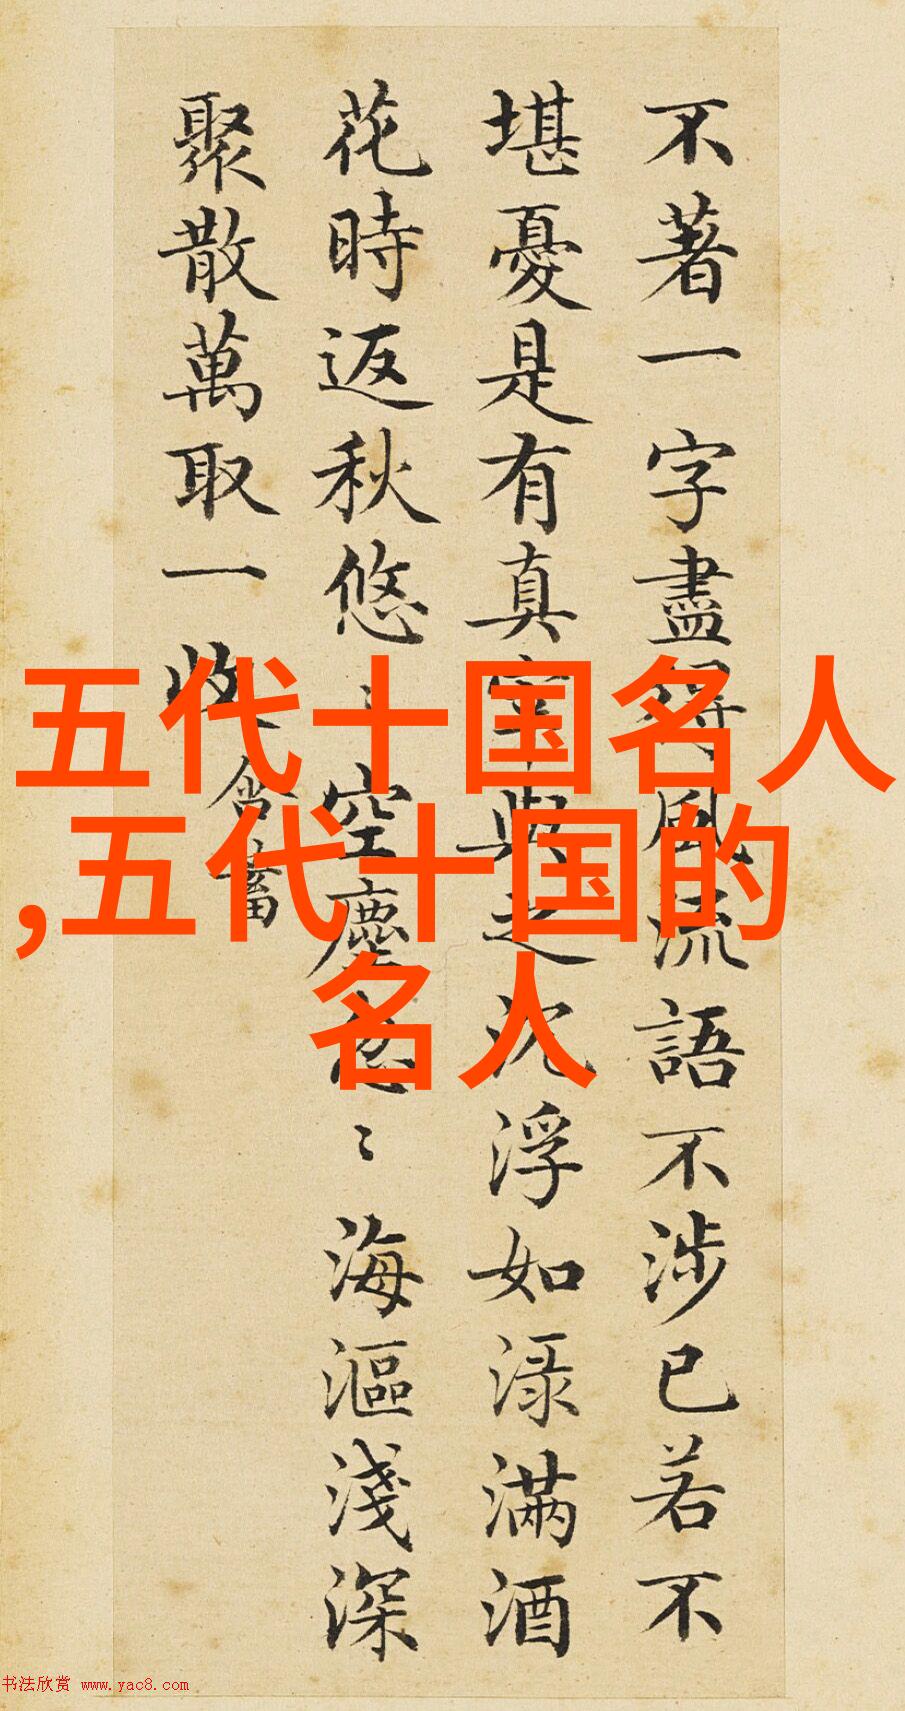 不著一字盡得風流語不涉已若不
堪憂是有真宰與之沉浮如渌滿酒
花時返秋悠〻空塵忽〻海漚淺深
聚散萬取一收
含蓄
五代十国名人
,五代十国的
名人
书法欣赏 www.yac8.com